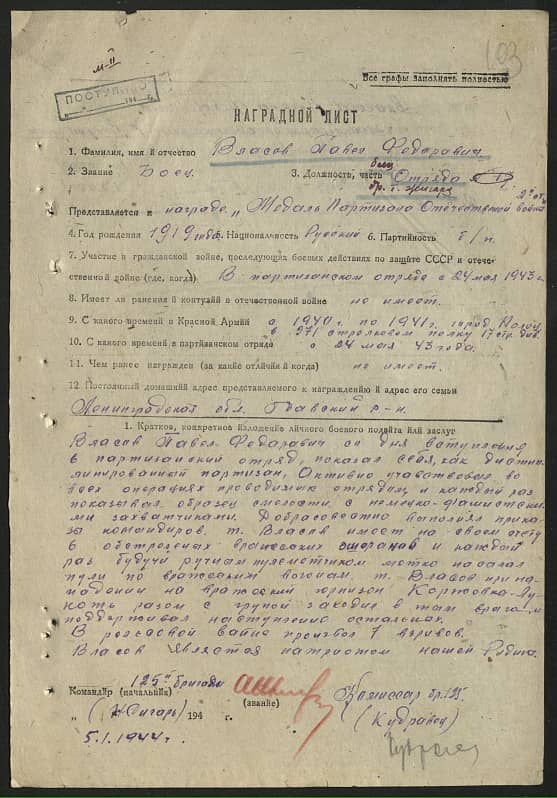 103
М-II
Все графы заполнять полностью
ПОСТУПИЛО
194
НАГРАДНОЙ ЛИСТ
1. Фамилия, имя и отчество Власов Павел Федаравич
2. Звание Боец 3. Должность, часть боец Отряда
бр. т. Жигаря
Представляется к награде „Медаль Партизана Отечественной война 2ой ст.
4. Год рождения 1919 года 5. Национальность Русский 6. Партийность б/п.
7. Участие в гражданской войне, последующих боевых действиях по защите СССР и отече-
ственной войне (где, когда) В партизанском отряде с 24 мая 1943 г.
8. Имеет ли ранения и контузии в отечественной войне не имеет.
9. С какого времени в Красной Армии с 1940 г. по 1941 г.
в 271 стрелковом полку 17 стр. див.
10. С какого времени в партизанском отряде с 24 мая 43 года.
11. Чем ранее награжден (за какие отличия и когда) не имеет.
12. Постоянный домашний адрес представляемого к награждению и адрес его семьи
Ленинградская обл. Гдавский р-н.
1. Краткое, конкретное изложение личного боевого подвига или заслуг
Власов Павел Федаравич со дня вступления
в партизанский отряд, показал себя, как дисцип-
линированный партизан, Активно учавствовал во
всех операциях проводимых отрядам, и каждый раз
показывал образец смелости с немецко-фашистски-
ми захватчиками. Добрасовестно выполнял прика-
зы командиров. т. Власов имеет на своем счету
6 обстреленых вражеских эшелонов и каждый
раз будучи ручным пулеметчиком метко насылал
пули по вражеским вагонам. т. Власов при на-
падении на вражеский гарнизон
разом с групой заходил в тыл врага и
поддерживал наступление остальных.
В рельсовой вайне произвел 7 взрывов.
Власов Является патриотом нашей Родины.
Командир (начальник) 125ой бригады
(звание)
Комиссар бр. 125
„ (Жигарь) 194 г.
(Кудравец)
5.1.1944 г.